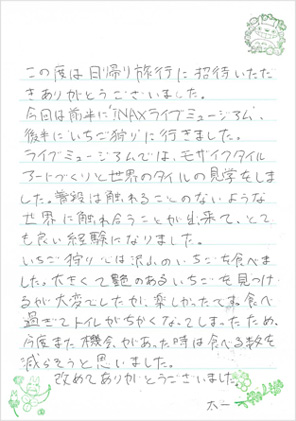 この度は日帰り旅行に招待いただ
きありがとうございました。
今回は前半に"iNAXライブミュージアム"、
後半に"いちご狩り"に行きました。
ライブミュージアムでは、モザイクタイル
アートづくりと世界のタイルの見学をし
ました。普段は触れることのないような
世界に触れ合うことが出来て、とて
も良い経験になりました。
いちご狩りでは沢山のいちごを食べま
した。大きくて艶のあるいちごを見つけ
るが大変でしたが、楽しかったです。食べ
過ぎてトイレがちかくなってしまったため、
今度また機会があった時は食べる数を
減らそうと思いました。
改めてありがとうございました。
太一